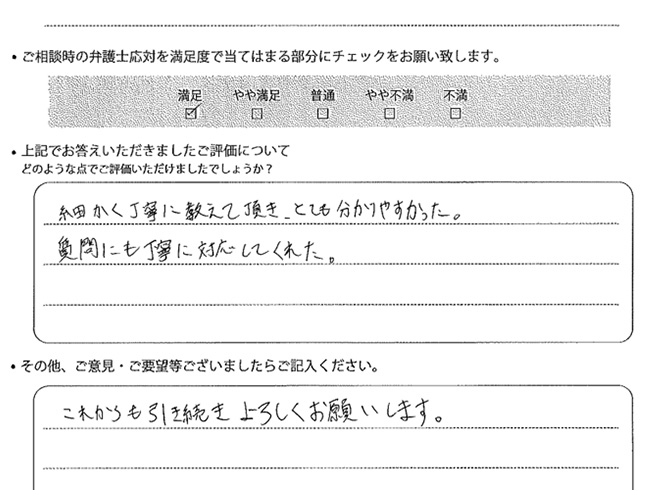 • ご相談時の弁護士応対を満足度で当てはまる部分にチェックをお願い致します。
満足 やや満足 普通 やや不満 不満
☑ □ □ □ □
• 上記でお答えいただきましたご評価について
どのような点でご評価いただけましたでしょうか？
細かく丁寧に教えて頂き、とても分かりやすかった。
質問にも丁寧に対応してくれた。
• その他、ご意見・ご要望等ございましたらご記入ください。
これからも引き続きよろしくお願いします。